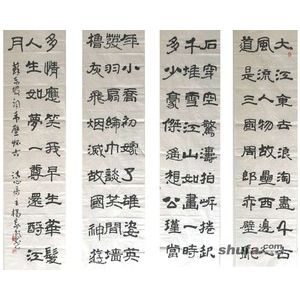 大江東去浪淘盡千古
風流人物故壘西邊人
道是三國周郎赤壁亂
石穿空驚濤拍岸捲起
千堆雪江山如畫一時
多少豪傑遙想公瑾當
年小喬初嫁了雄姿英
發羽扇綸巾談笑間檣
櫓灰飛煙滅故國神遊
多情應笑我早生華髮
人生如夢一尊還酹江
月
蘇東坡詞赤壁懷古
shufa.com